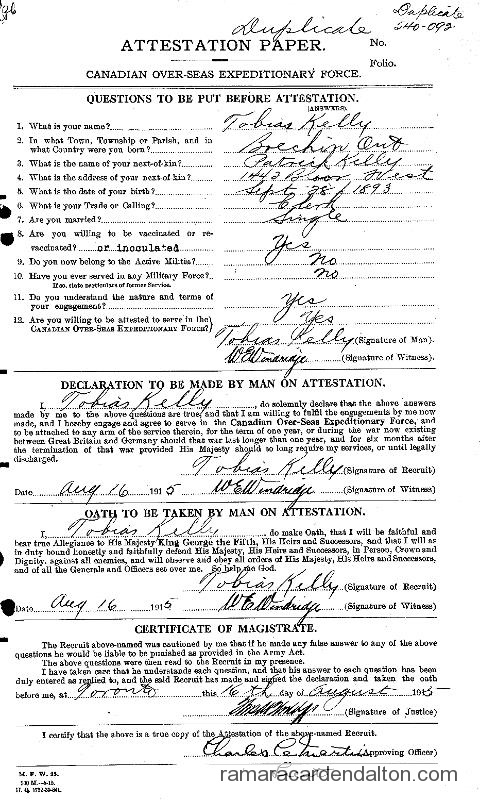 26
Duplicate
Duplicate
240-092
ATTESTATION PAPER.
No.
Folio.
CANADIAN OVER-SEAS EXPEDITIONARY FORCE.
QUESTIONS TO BE PUT BEFORE ATTESTATION.
(ANSWERS)
1. What is your name? Tobias Kelly
2. In what Town, Township or Parish, and in
what Country were you born? Brechin Ont
3. What is the name of your next-of-kin? Patrick Kelly
4. What is the address of your next-of-kin? Bloor West
5. What is the date of your birth? Sept 28/1893
6. What is your Trade or Calling? Clerk
7. Are you married? Single
8. Are you willing to be vaccinated or re-
vaccinated? or inoculated Yes
9. Do you now belong to the Active Militia? No
10. Have you ever served in any Military Force? No
If so, state particulars of former Service.
11. Do you understand the nature and terms of
your engagement? Yes
12. Are you willing to be attested to serve in the
CANADIAN OVER-SEAS EXPEDITIONARY FORCE? Yes
Tobias Kelly (Signature of Man).
W E Windridge (Signature of Witness).
DECLARATION TO BE MADE BY MAN ON ATTESTATION.
I, Tobias Kelly, do solemnly declare that the above answers
made by me to the above questions are true, and that I am willing to fulfil the engagements by me now
made, and I hereby engage and agree to serve in the Canadian Over-Seas Expeditionary Force, and
to be attached to any arm of the service therein, for the term of one year, or during the war now existing
between Great Britain and Germany should that war last longer than one year, and for six months after
the termination of that war provided His Majesty should so long require my services, or until legally
discharged.
Tobias Kelly (Signature of Recruit)
Date Aug 16 1915 W E Windridge (Signature of Witness)
OATH TO BE TAKEN BY MAN ON ATTESTATION.
I, Tobias Kelly, do make Oath, that I will be faithful and
bear true Allegiance to His Majesty King George the Fifth, His Heirs and Successors, and that I will as
in duty bound honestly and faithfully defend His Majesty, His Heirs and Successors, in Person, Crown and
Dignity, against all enemies, and will observe and obey all orders of His Majesty, His Heirs and Successors,
and of all the Generals and Officers set over me. So help me God.
Tobias Kelly (Signature of Recruit)
Date Aug 16 1915 W E Windridge (Signature of Witness)
CERTIFICATE OF MAGISTRATE.
The Recruit above-named was cautioned by me that if he made any false answer to any of the above
questions he would be liable to be punished as provided in the Army Act.
The above questions were then read to the Recruit in my presence.
I have taken care that he understands each question, and that his answer to each question has been
duly entered as replied to, and the said Recruit has made and signed the declaration and taken the oath
before me, at Toronto this 16th day of August 1915
(Signature of Justice)
I certify that the above is a true copy of the Attestation of the above-named Recruit.
Charles (Approving Officer)
M. F. W. 23.
ramaracardendalton.com